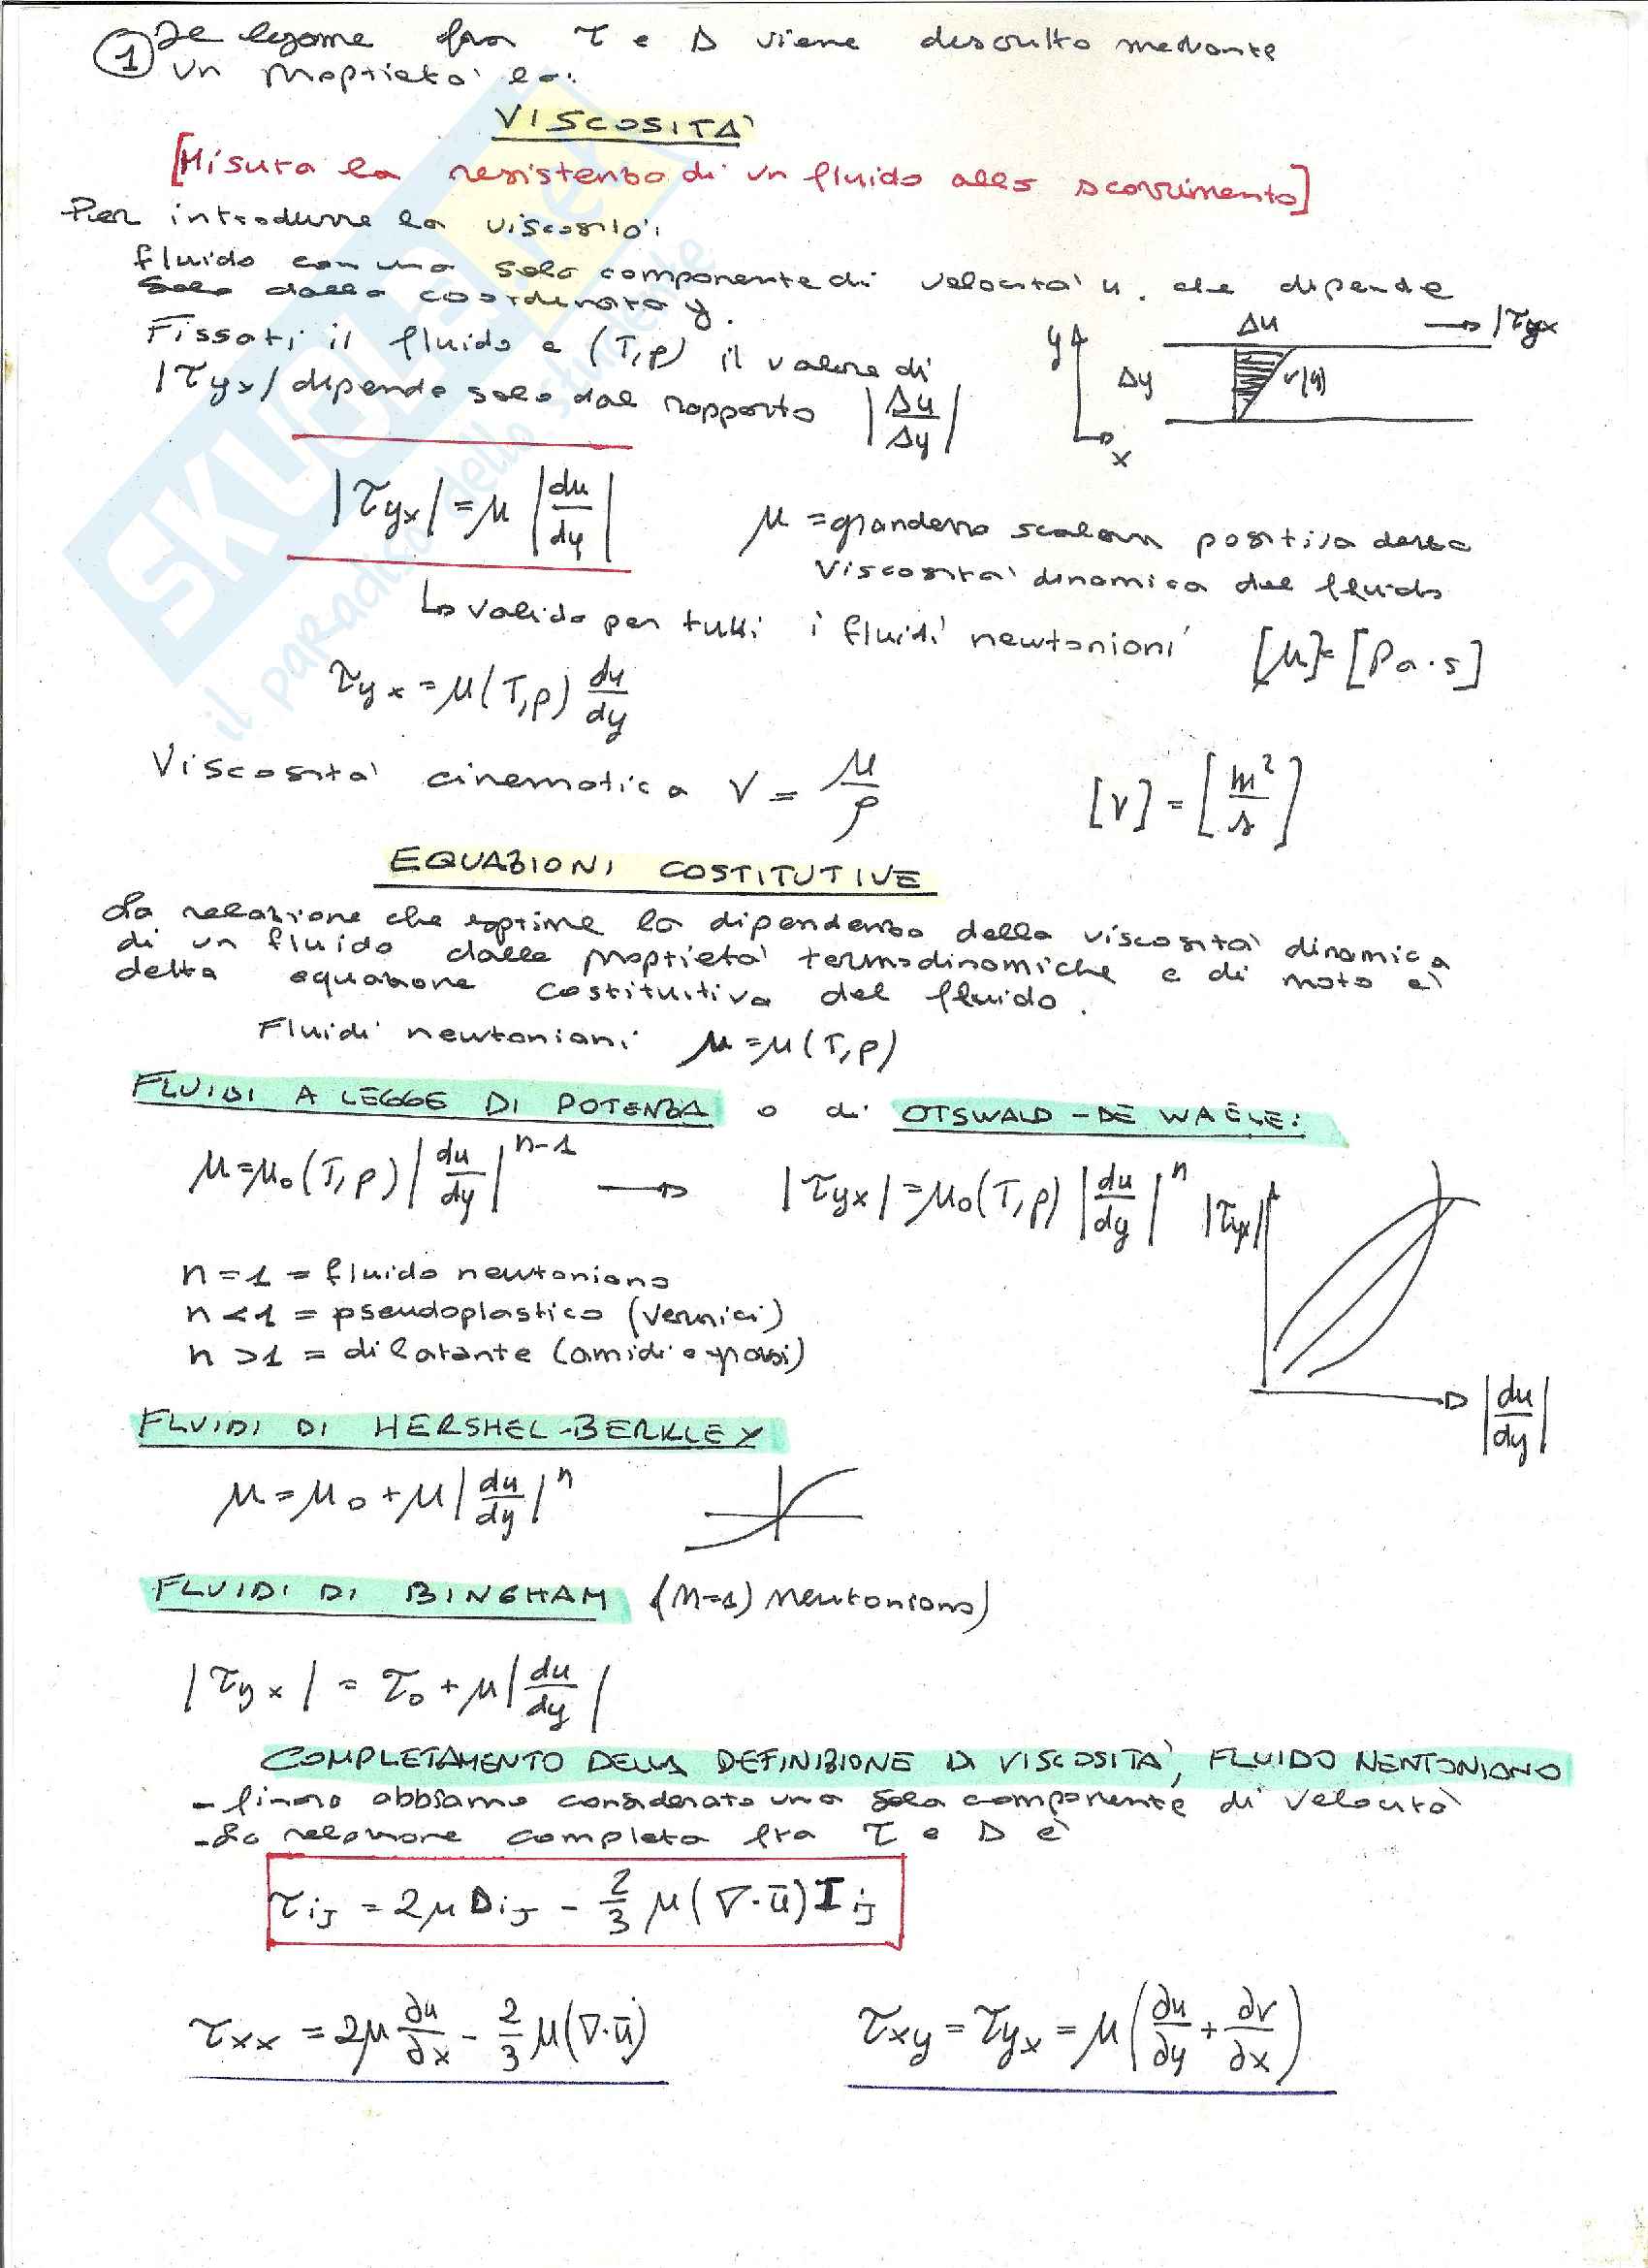 ① Il legame fra τ e D viene descritto mediante
un proprietà la:
VISCOSITA'
[Misura la resistenza di un fluido allo scorrimento]
Per introdurre la viscosità:
fluido con una sola componente di velocità u, che dipende
solo dalla coordinata y.
Fissati il fluido e (T,p) il valore di
|τyx| dipende solo dal rapporto |Δu/Δy|
y Δy Δu v(y) |τyx| x
|τyx| = μ |du/dy|
μ = grandezza scalare positiva detta
viscosità dinamica del fluido
↳ valido per tutti i fluidi newtoniani [μ] = [Pa·s]
τyx = μ(T,p) du/dy
Viscosità cinematica ν = μ/ρ [ν] = [m²/s]
EQUAZIONI COSTITUTIVE
La relazione che esprime la dipendenza della viscosità dinamica
di un fluido dalle proprietà termodinamiche e di moto è
detta equazione costitutiva del fluido.
Fluidi newtoniani μ = μ(T,p)
FLUIDI A LEGGE DI POTENZA o di OTSWALD-DE WAELE:
μ = μ₀(T,p) |du/dy|ⁿ⁻¹ → |τyx| = μ₀(T,p) |du/dy|ⁿ
|τyx|
n = 1 = fluido newtoniano
n < 1 = pseudoplastico (vernici)
n > 1 = dilatante (amidi e grassi)
|du/dy|
FLUIDI DI HERSHEL-BERKLEY
μ = μ₀ + μ |du/dy|ⁿ
FLUIDI DI BINGHAM (n=1) newtoniano)
|τyx| = τ₀ + μ |du/dy|
COMPLETAMENTO DELLA DEFINIZIONE DI VISCOSITA', FLUIDO NEWTONIANO
- finora abbiamo considerato una sola componente di velocità
- La relazione completa fra τ e D è
τij = 2μDij - 2/3 μ(∇·ū)Iij
τxx = 2μ ∂u/∂x - 2/3 μ(∇·ū) τxy = τyx = μ(∂u/∂y + ∂v/∂x)
SKUOLA.net
il paradiso dello studente